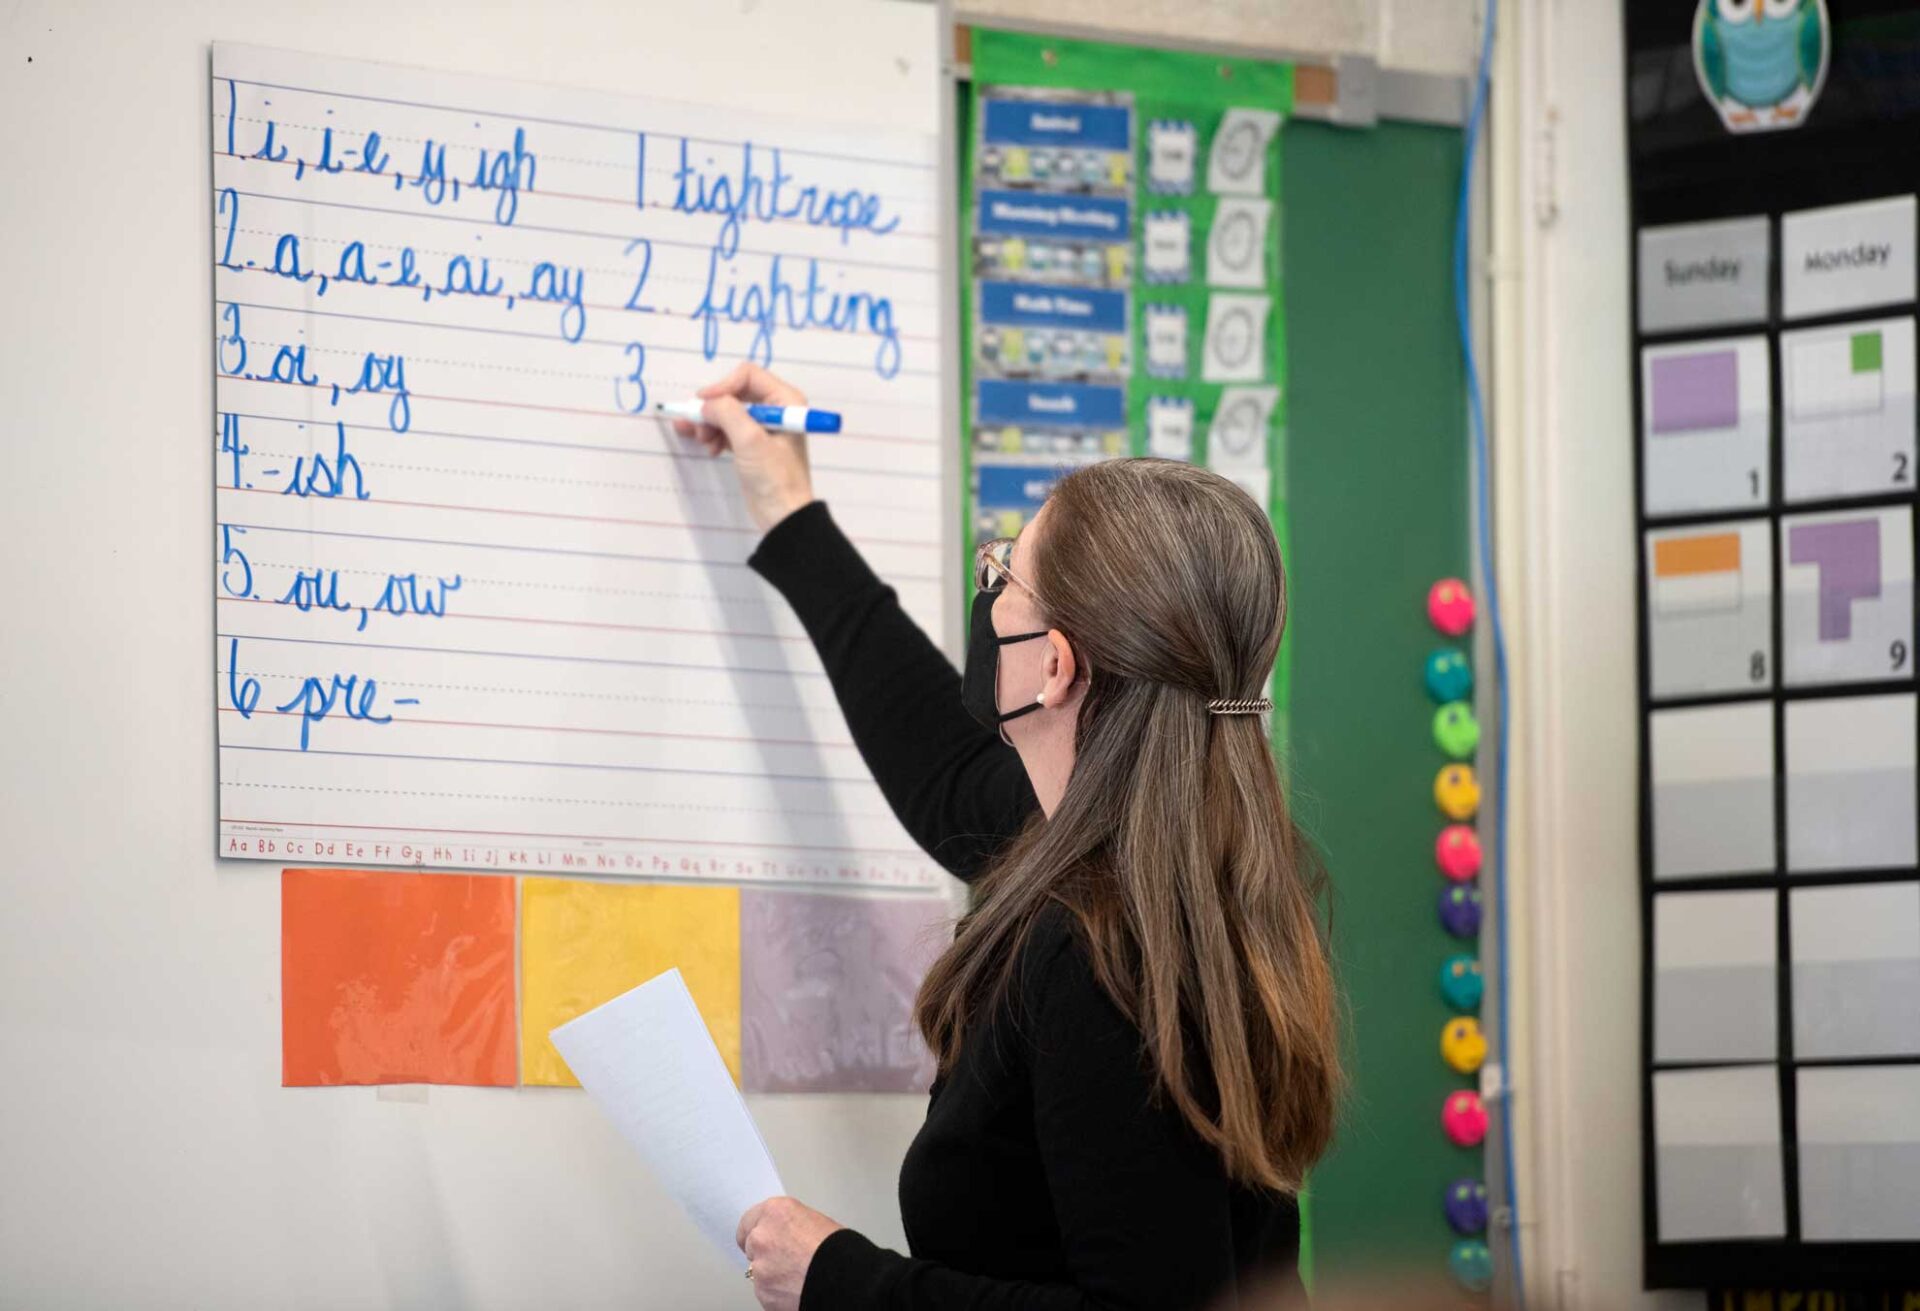 1. i, i-e, y, igh 1. tightrope
2. a, a-e, ai, ay 2. fighting
3. oi, oy 3
4. -ish
5. ou, ow
6 pre-
Aa Bb Cc Dd Ee Ff Gg Hh Ii Jj Kk Ll Mm Nn Oo Pp Qq Rr Ss Tt Uu Vv Ww Xx Yy Zz
Morning Meeting
Math Time
Sunday Monday
1 2
8 9